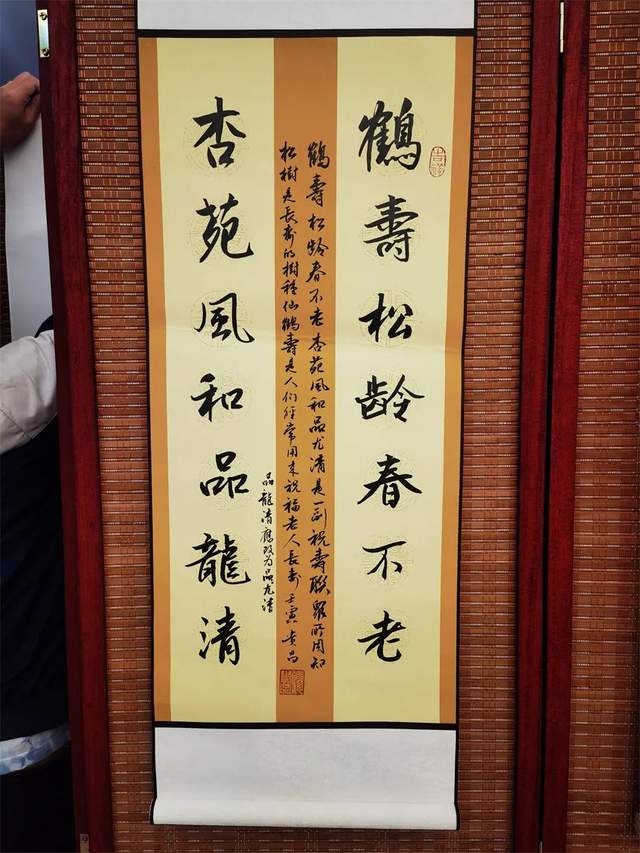 鶴壽松龄春不老
吉祥
鶴壽松龄春不老杏苑風和品尤清是一副祝壽聯眾所周知
松樹是長壽的樹種仙鶴壽是人们经常用来祝福老人長壽壬寅 昌
品龍清應改为品尤清
杏苑風和品龍清